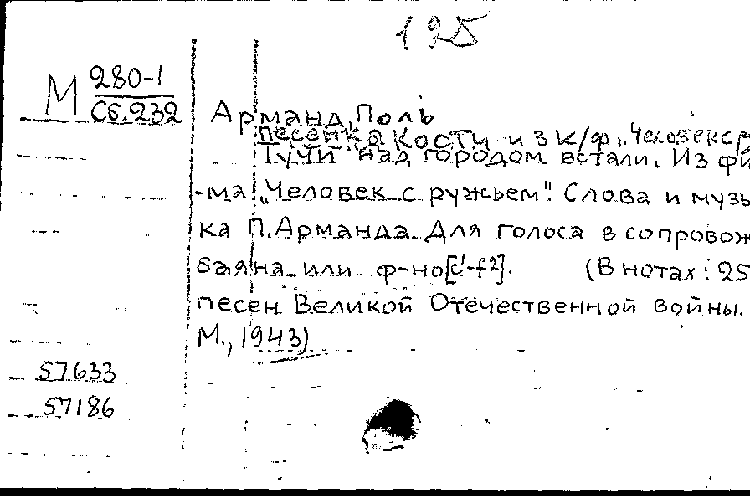 125
М 280-1
Сб.232
Арманд, Поль
Песенка Кости из к/ф „Человек с р
Тучи над городом встали. Из фи
-ма „Человек с ружьем". Слова и музы
ка П.Арманда. Для голоса в сопровож
баяна или ф-но [c¹-f²]. (В нотах: 25
песен Великой Отечественной войны.
М., 1943)
57633
57186